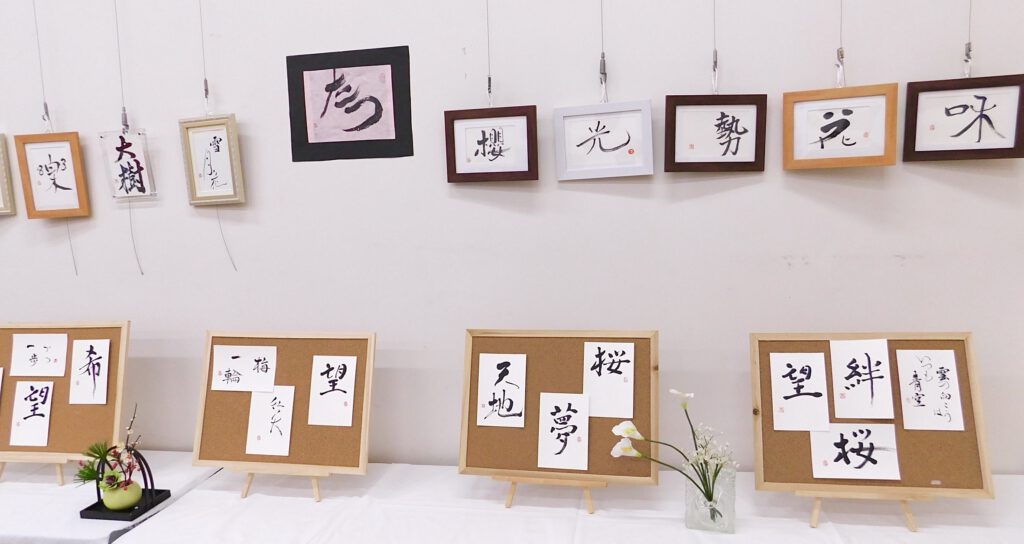 樂
大樹
雪
月
花
たつ
櫻
光
勢
花
咲
一歩
ずつ
希
望
梅
一輪
望
天地
桜
夢
望
絆
雲の向こうは
いつも
青空
桜